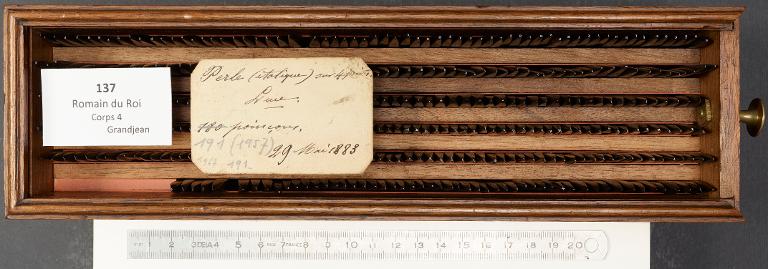 137
Romain du Roi
Corps 4
Grandjean
Perle (italique) sur 4 points
Luce.
180 poinçons.
191 (1957) 29 Mai 1883
191
1 2 3 4 5 6 7 8 9 10 11 12 13 14 15 16 17 18 19 20